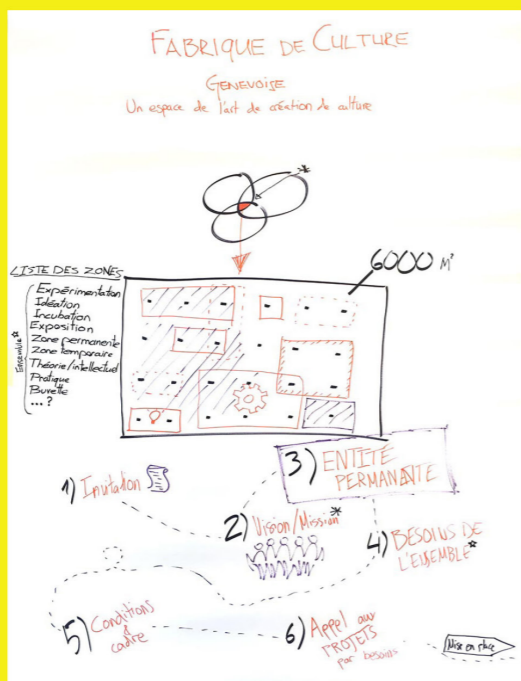 FABRIQUE DE CULTURE
GENEVOISE
Un espace de l'art de création de culture
*
6000 M²
LISTE DES ZONES
Ensemble ☆
Expérimentation
Idéation
Incubation
Exposition
Zone permanente
Zone temporaire
Théorie/intellectuel
Pratique
Buvette
...?
1) Invitation
2) Vision/Mission*
3) ENTITÉ
PERMANENTE
4) BESOINS DE
L'ENSEMBLE ☆
5) Conditions
&
cadre
6) Appel aux
PROJETS
par besoins
Mise en place